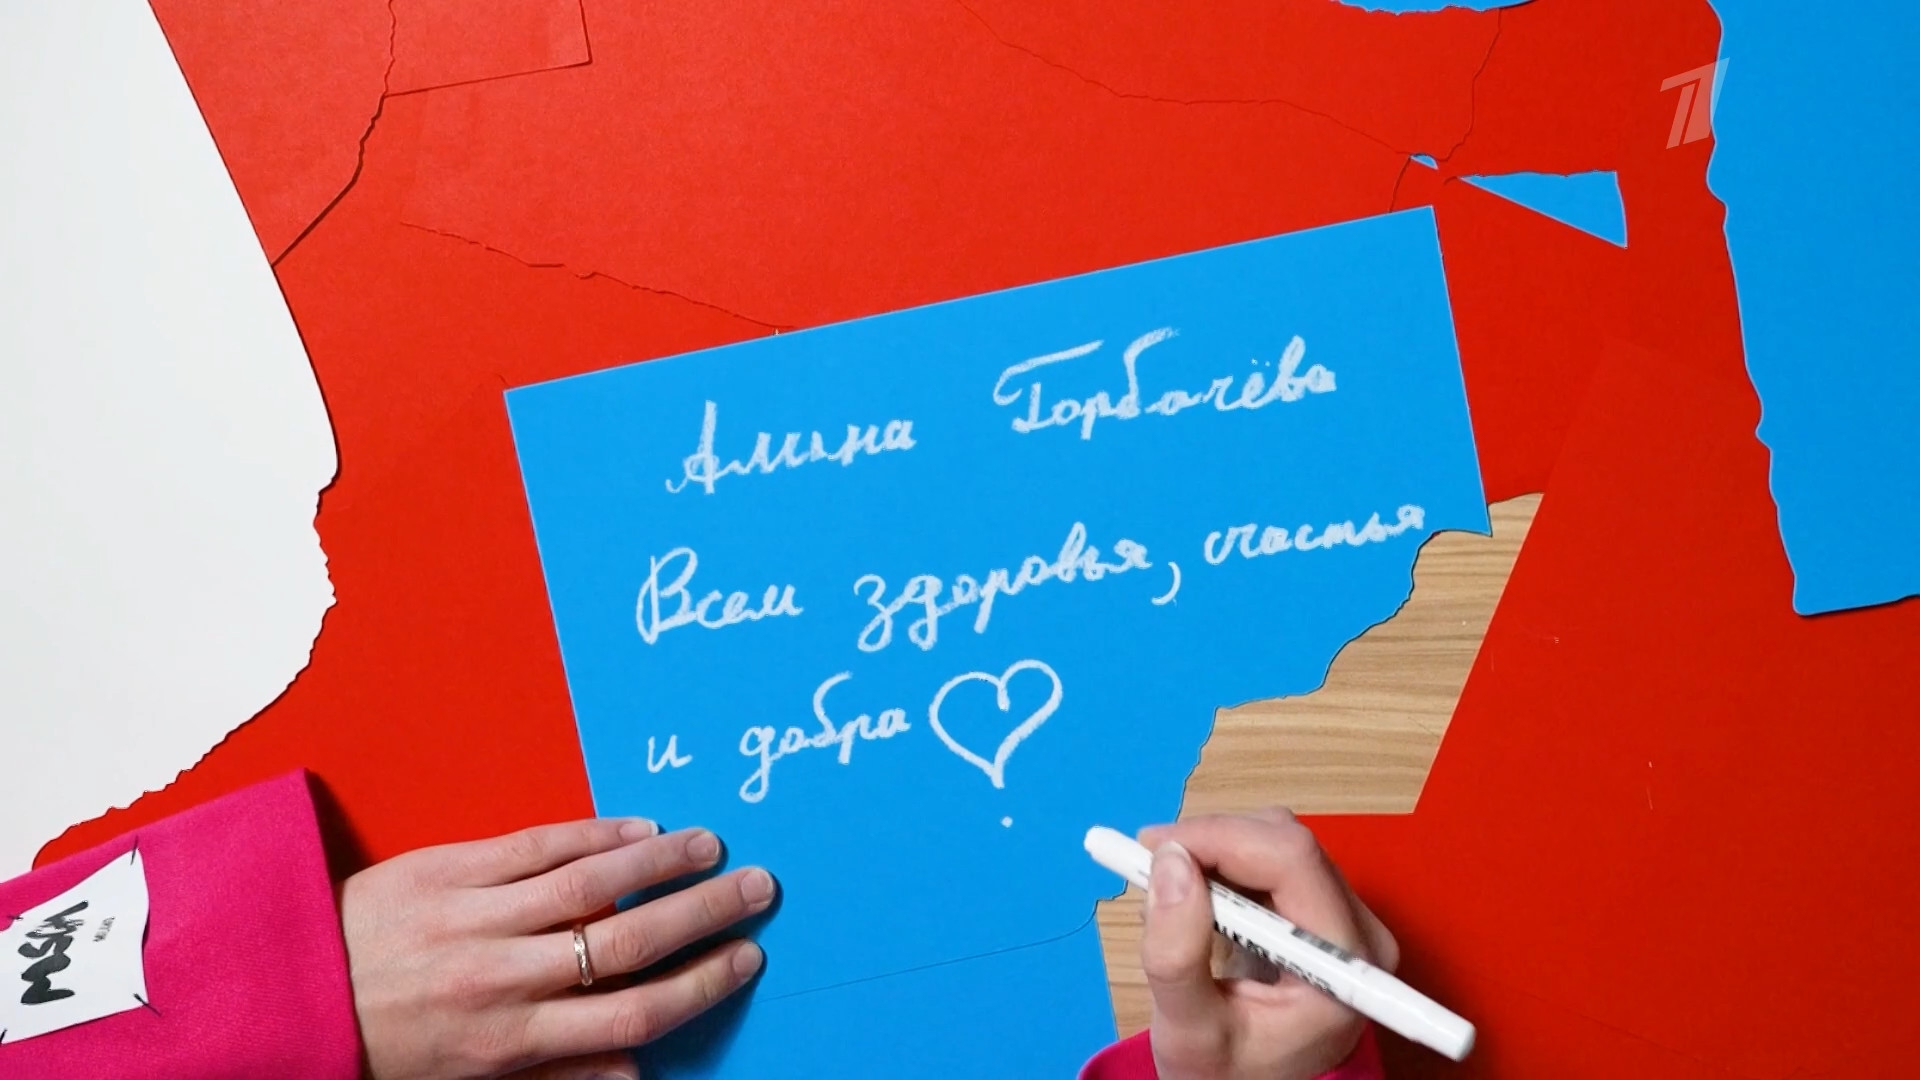 Алина Горбачёва
Всем здоровья, счастья
и добра
MSGM
MILANO